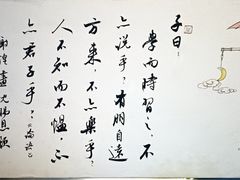 子曰：
學而時習之，不
亦说乎？有朋自遠
方来，不亦樂乎？
人不知而不愠，亦
亦君子乎？《论语》